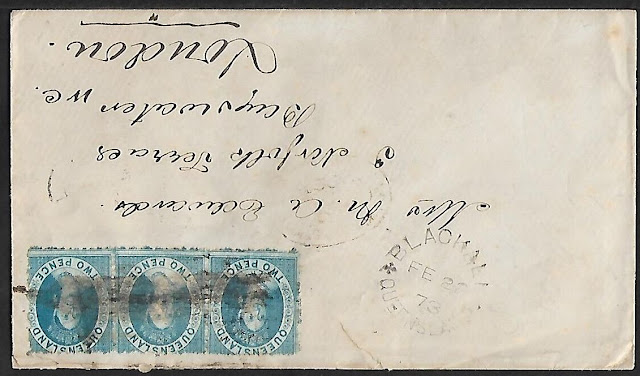 Mrs M. A. Edwards.
Norfolk Terrace
Bayswater W.C.
London.
QUEENSLAND
TWO PENCE
QUEENSLAND
TWO PENCE
QUEENSLAND
TWO PENCE
BLACKALL
FE 2
73
QUEENSLAND